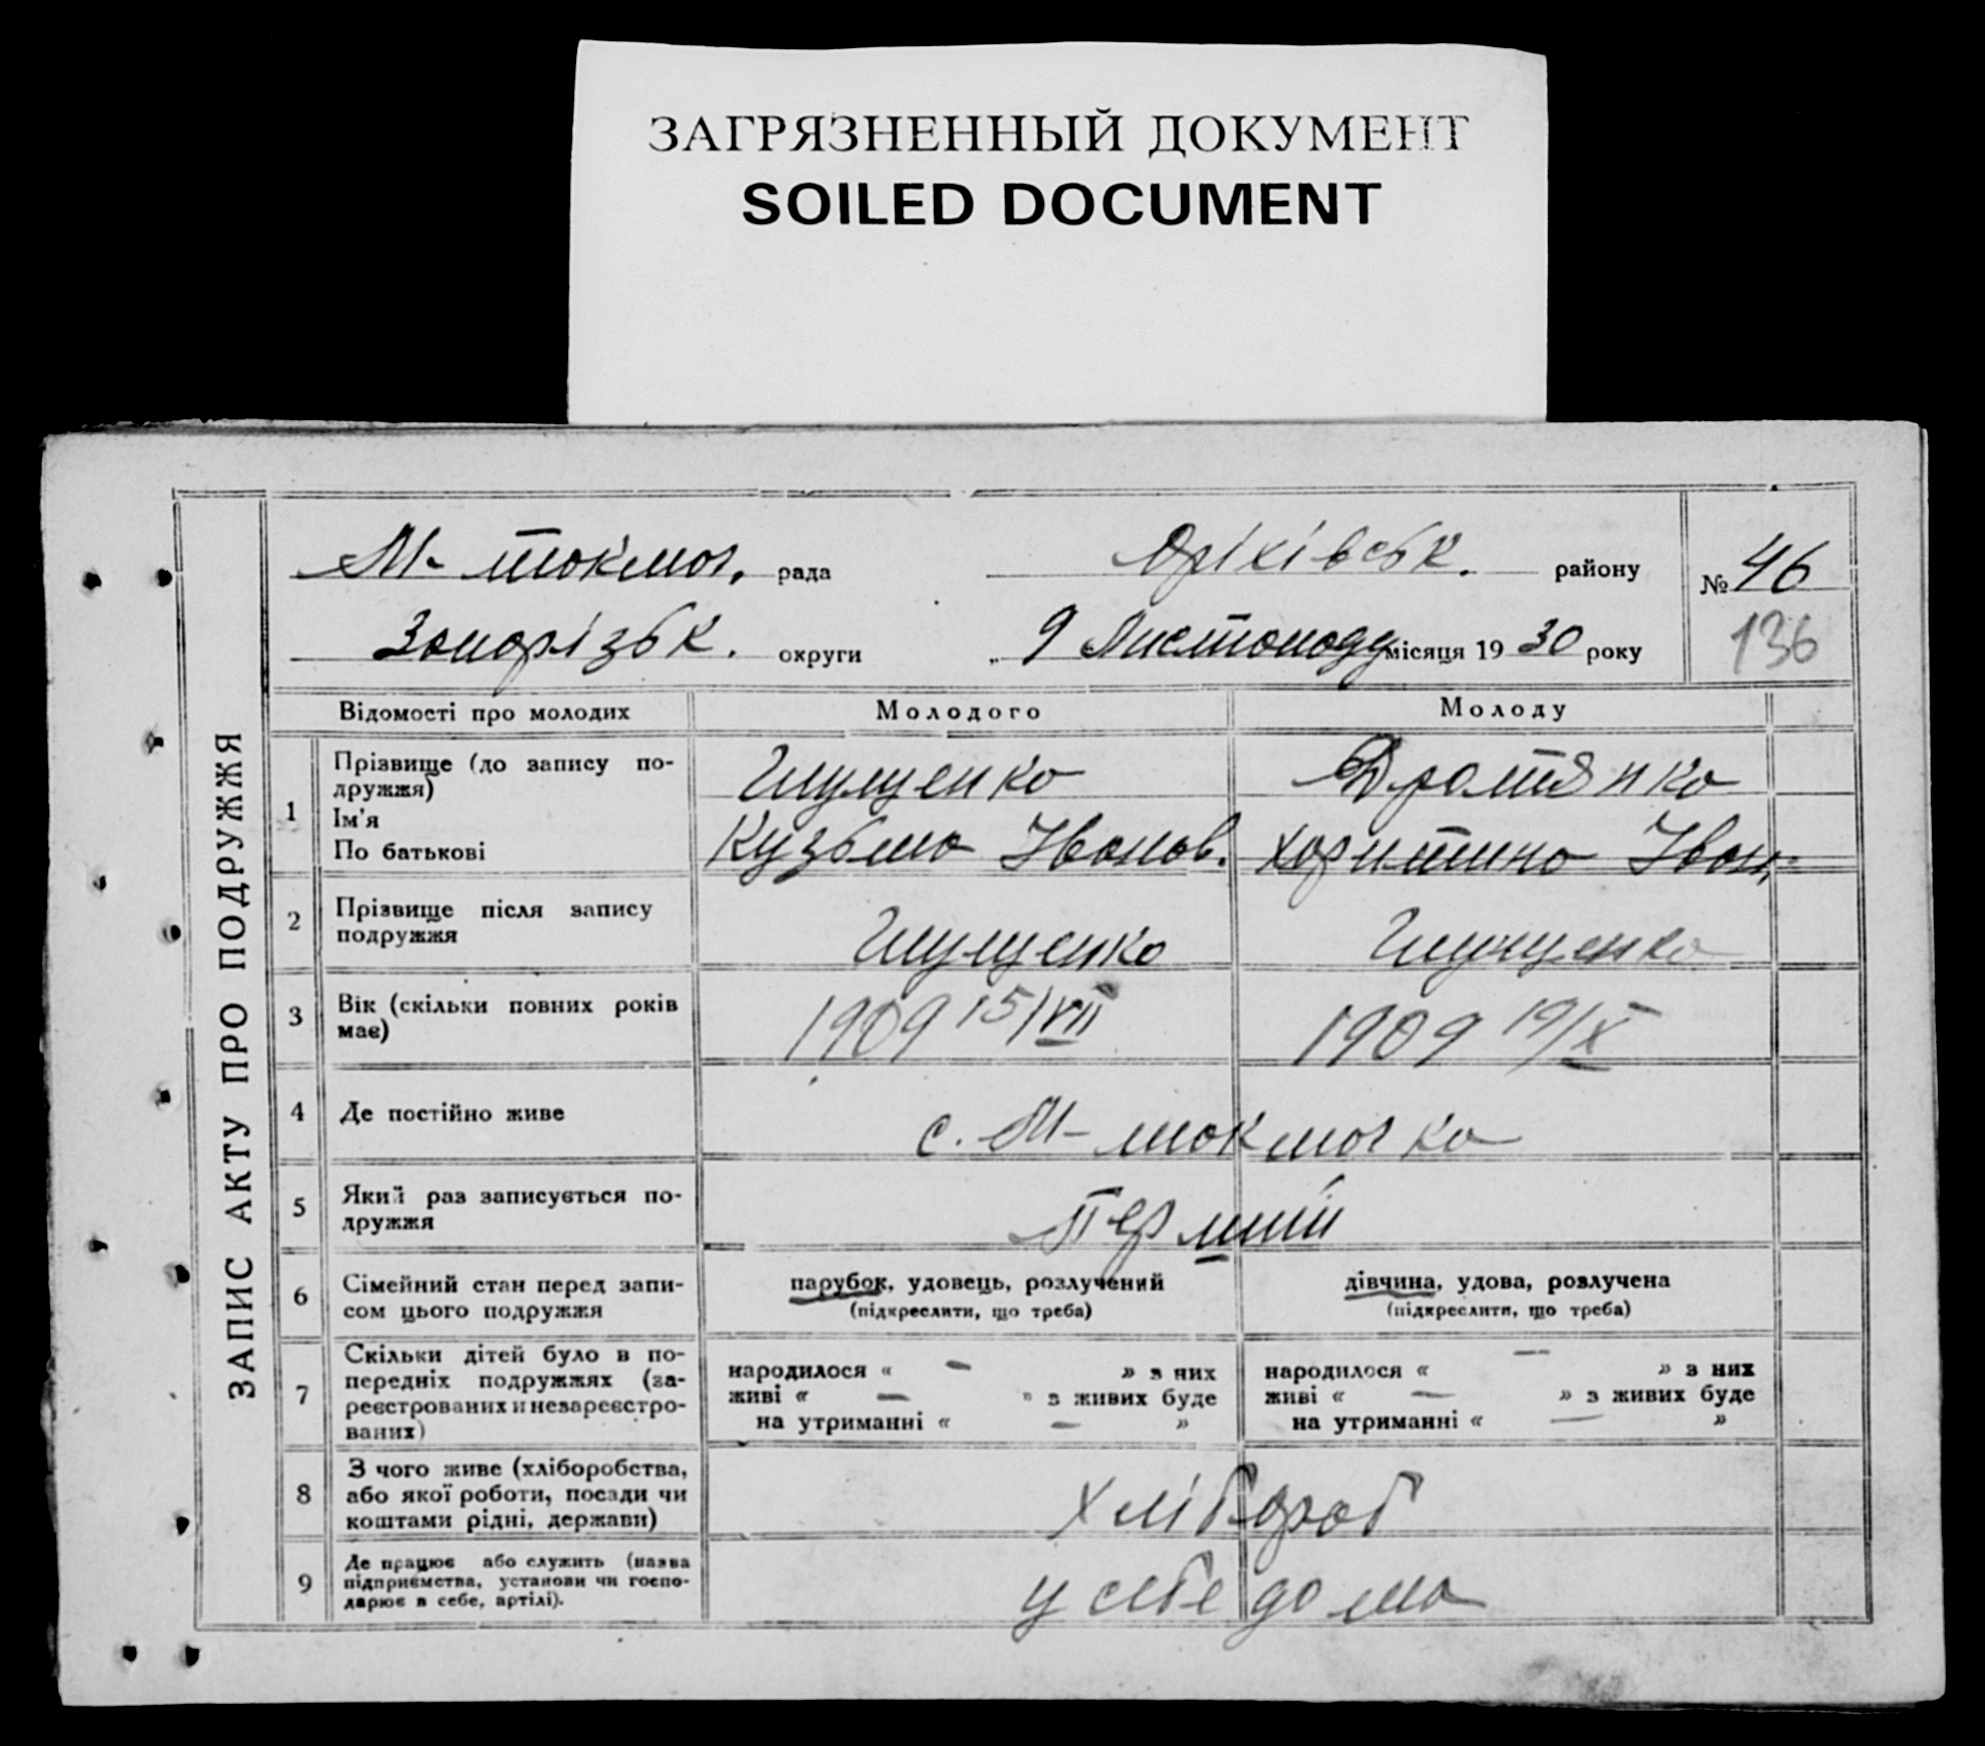 ЗАГРЯЗНЕННЫЙ ДОКУМЕНТ
SOILED DOCUMENT
ЗАПИС АКТУ ПРО ПОДРУЖЖЯ
М-токмач. рада Оріхівськ. району № 46
Запорізьк. округи „ 9 Листопаду місяця 19 30 року 136
Відомості про молодих Молодого Молоду
1 Прізвище (до запису по-
дружжя)
Ім'я
По батькові
Кузьма Іванов.
Харитина Іван.
2 Прізвище після запису
подружжя
3 Вік (скільки повних років
має)
1909 15/VII 1909 19/X
4 Де постійно живе с. М-токмачка
5 Який раз записується по-
дружжя
Перший
6 Сімейний стан перед запи-
сом цього подружжя
парубок, удовець, розлучений
(підкреслити, що треба)
дівчина, удова, розлучена
(підкреслити, що треба)
7 Скільки дітей було в по-
передніх подружжях (за-
реєстрованих и незареєстро-
ваних)
народилося « — » з них
живі « — » з живих буде
на утриманні « — »
народилося « — » з них
живі « — » з живих буде
на утриманні « — »
8 З чого живе (хліборобства,
або якої роботи, посади чи
коштами рідні, держави)
хлібороб
9 Де працює або служить (назва
підприємства, установи чи госпо-
дарює в себе, артілі).
у себе дома